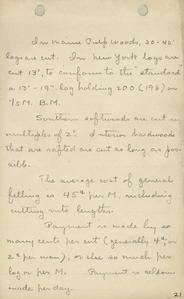 In Maine Pulp woods, 30-40'
logs are cut. In New York logs are
cut 13', to conform to the "standard"
a 13' - 19" log holding 200 (196) or
1/5 M. B.M.
Southern softwoods are cut in
multiples of 2'. Interior hardwoods
that are rafted are cut as long as pos-
sible.
The average cost of general
felling is 45¢ per M, including
cutting into lengths.
Payment is made by so
many cents per cut (generally 4¢, or
2¢ per man), or else so much per
log or per M. Payment is seldom
made per day.
21